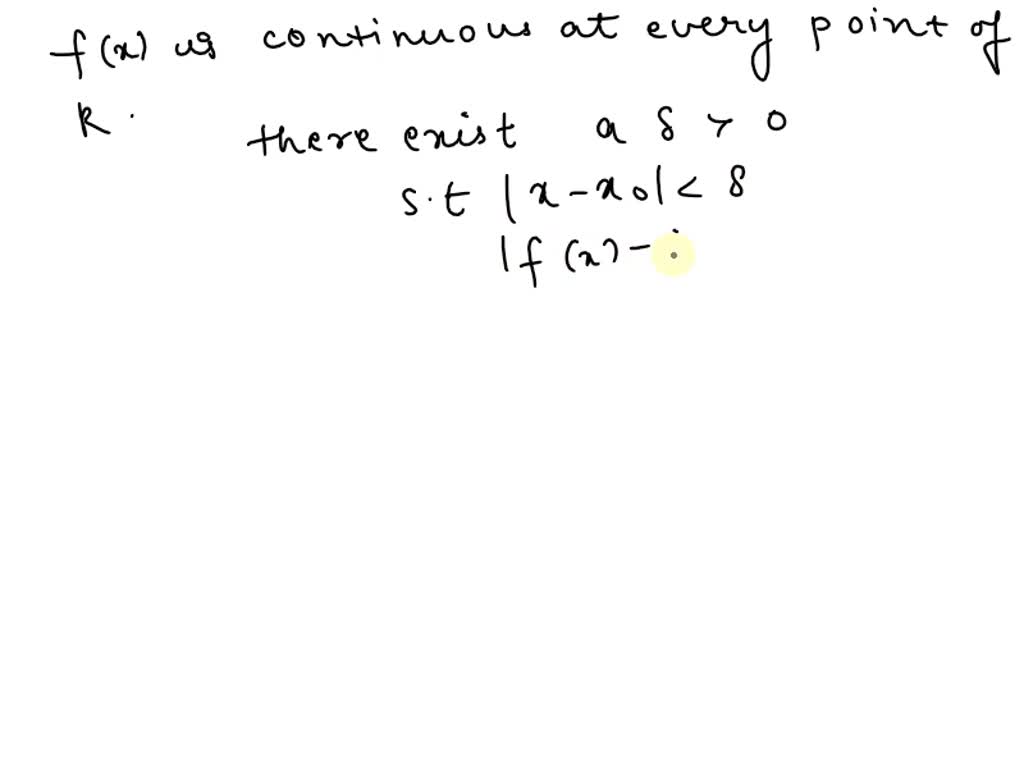 f(x) is continuous at every point of
k.
there exist a δ > 0
s.t |x - x0| < δ
|f(x) -